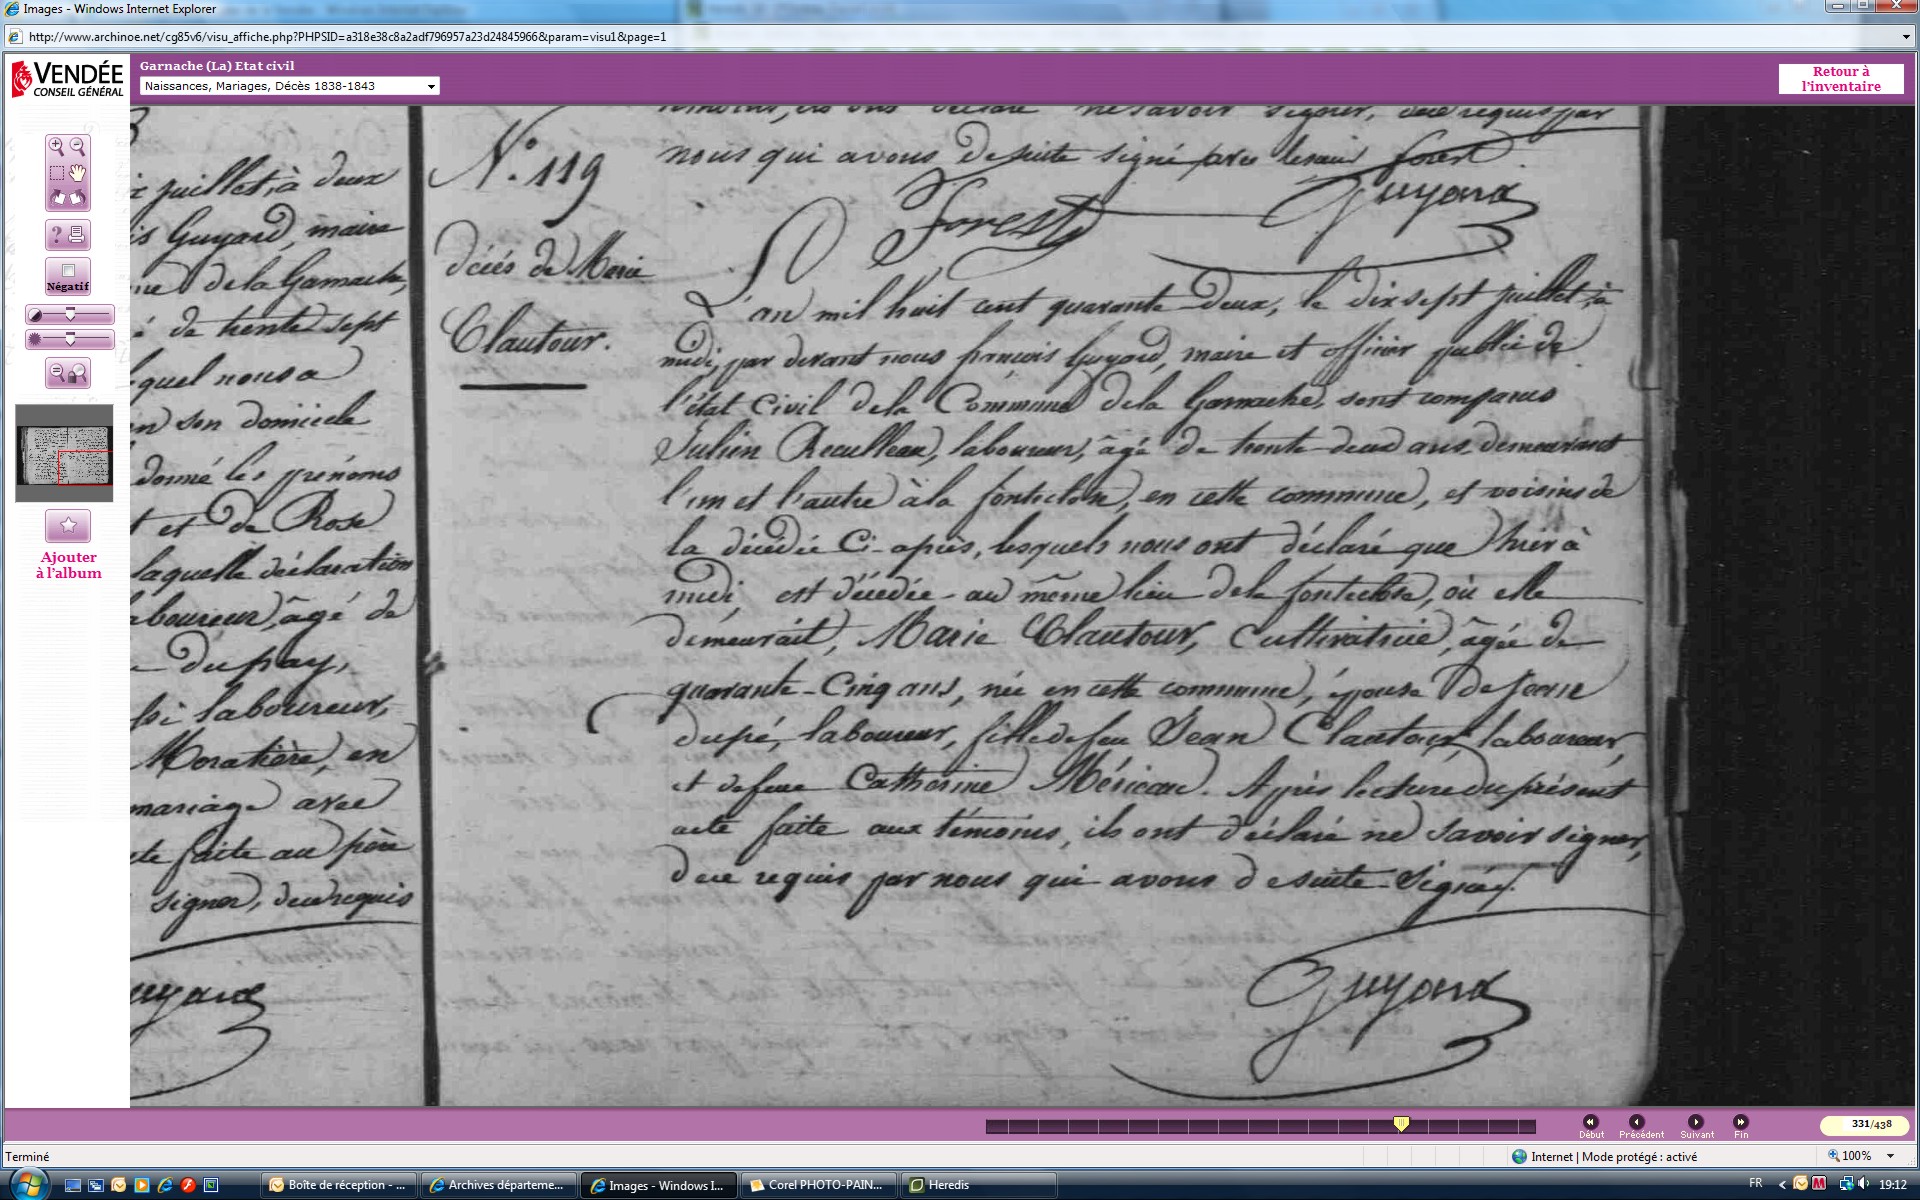 Images - Windows Internet Explorer
http://www.archinoe.net/cg85v6/visu_affiche.php?PHPSID=a318e38c8a2adf796957a23d24845966&param=visu1&page=1
VENDÉE
CONSEIL GÉNÉRAL
Garnache (La) Etat civil
Naissances, Mariages, Décès 1838-1843
Retour à
l'inventaire
Négatif
Ajouter
à l'album
juillet, à deux
Guyard, maire
de la Garnache,
de trente sept
quel nous a
en son domicile
donné les prénoms
et de Rose
laquelle déclaration
laboureur, âgé de
laboureur,
Moratière, en
mariage avec
faite au père
signer, de ce requis
uyard
N.° 119
décés de Marie
Clautour.
témoins, ils ont déclaré ne savoir signer, de ce requis par
nous qui avons de suite signé avec le sieur forest.
Forest
Guyard
L'an mil huit cent quarante deux, le dix sept juillet, à
midi, par devant nous françois Guyard, maire et officier public de
l'état Civil de la Commune de la Garnache, sont comparus
Julien Reculleau, laboureur, âgé de trente deux ans, demeurant
l'un et l'autre à la fonteclose, en cette commune, et voisins de
la décédée Ci-après, lesquels nous ont déclaré que hier à
midi est décédée au même lieu de la fonteclose, où elle
demeurait, Marie Clautour, Cultivatrice, âgée de
quarante-Cinq ans, née en cette commune, épouse de
dupé, laboureur, fille de feu Jean Clautour laboureur,
et de feue Catherine Méricau. Après lecture du présent
acte faite aux témoins, ils ont déclaré ne savoir signer,
de ce requis par nous qui avons de suite signé.
Guyard
Début
Précédent
Suivant
Fin
331/438
Terminé
Internet | Mode protégé : activé
100%
Boîte de réception - ...
Archives départeme...
Images - Windows I...
Corel PHOTO-PAIN...
Heredis
FR
19:12